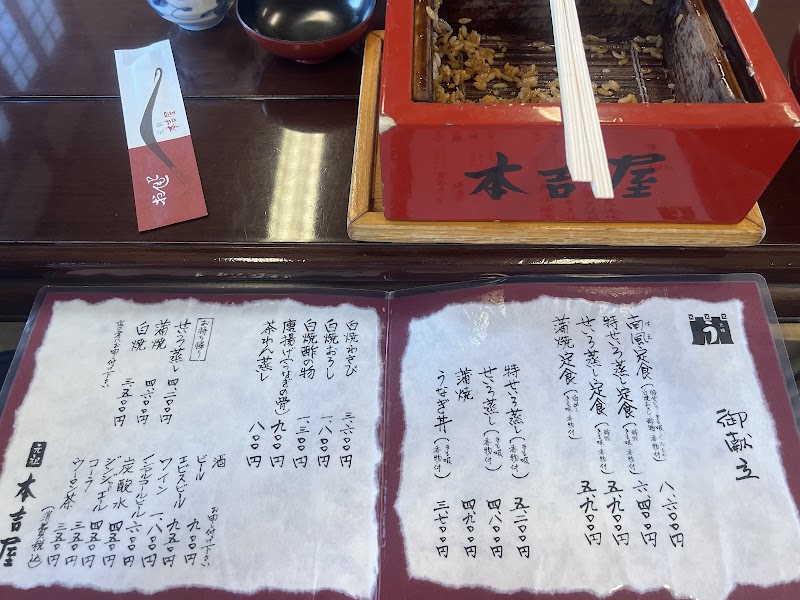 本吉屋
う
御献立
南風定食
八、六〇〇円
特せいろ蒸し定食
六、四〇〇円
せいろ蒸し定食
五、九〇〇円
蒲焼定食
五、九〇〇円
特せいろ蒸し（きも吸 香物付）
五、二〇〇円
せいろ蒸し（きも吸 香物付）
四、八〇〇円
蒲焼
四、九〇〇円
うなぎ丼（きも吸 香物付）
三、七〇〇円
白焼わさび
三、六〇〇円
白焼おろし
一、八〇〇円
白焼酢の物
一、三〇〇円
唐揚げ（うなぎの骨）
九〇〇円
茶わん蒸し
八〇〇円
お持ち帰り
せいろ蒸し
四、二〇〇円
蒲焼
四、六〇〇円
白焼
三、五〇〇円
酒
お申し付け下さい
ビール
九〇〇円
エビスビール
九五〇円
ワイン
一、八〇〇円
ノンアルコールビール
六〇〇円
炭酸水
四五〇円
ジンジャーエール
四五〇円
コーラ
三五〇円
ウーロン茶
三五〇円
（消費税込）
元祖
本吉屋